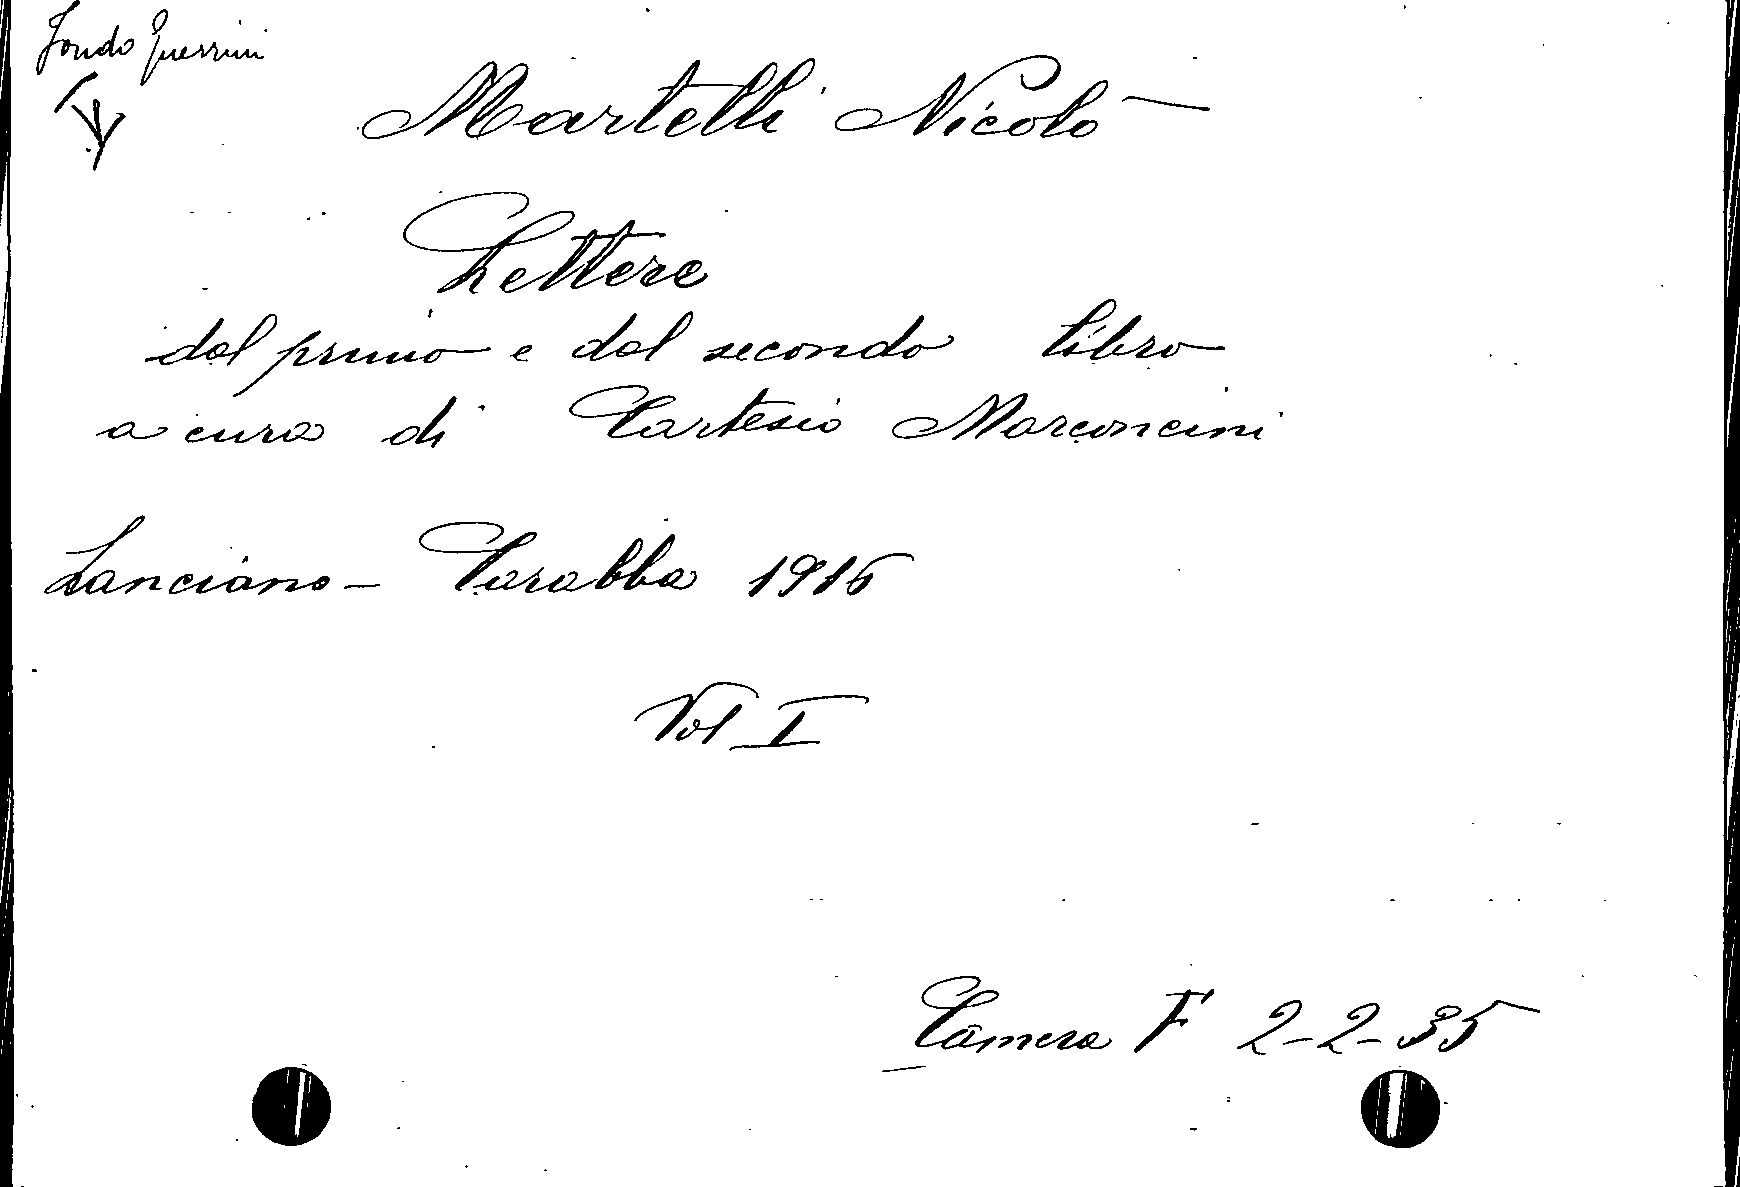 Fondo Guerrini
Martelli Nicolò
Lettere
dal primo e dal secondo libro
a cura di Cartesio Marconcini
Lanciano - Carabba 1916
Vol I
Camera F 2-2-35